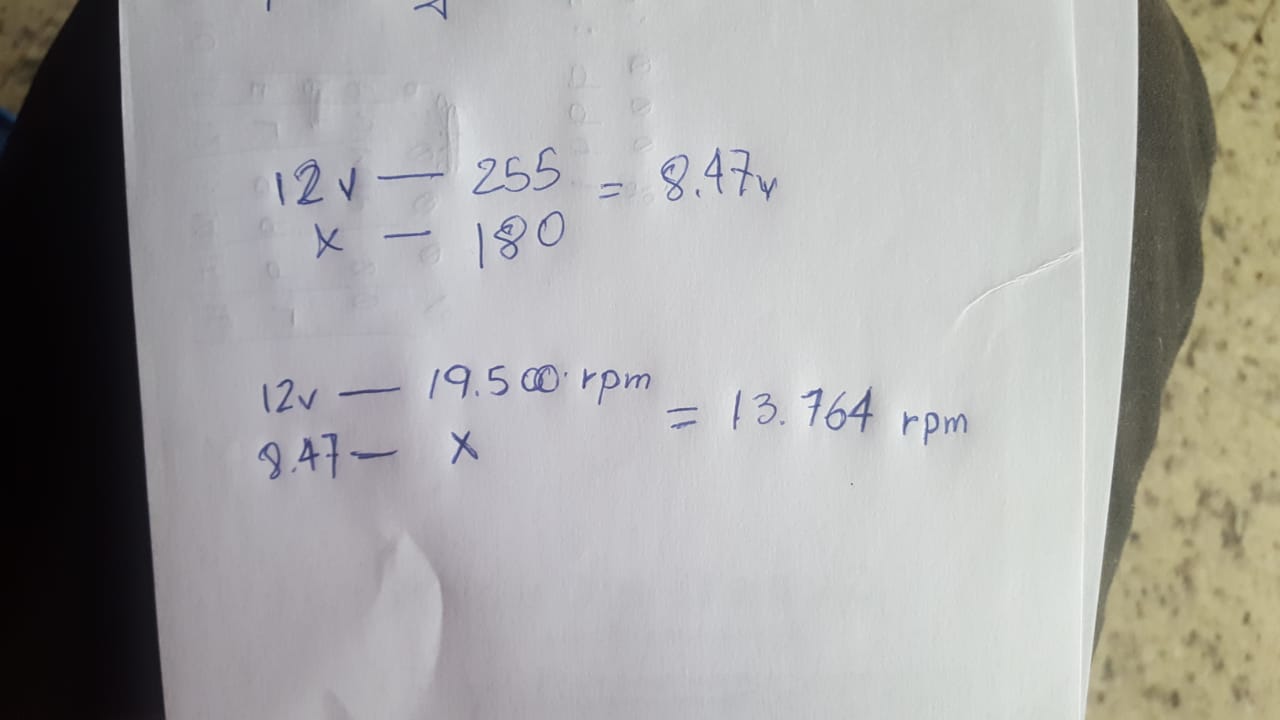 12v — 255 = 8.47v
x — 180
12v — 19.500 rpm = 13.764 rpm
8.47 — x